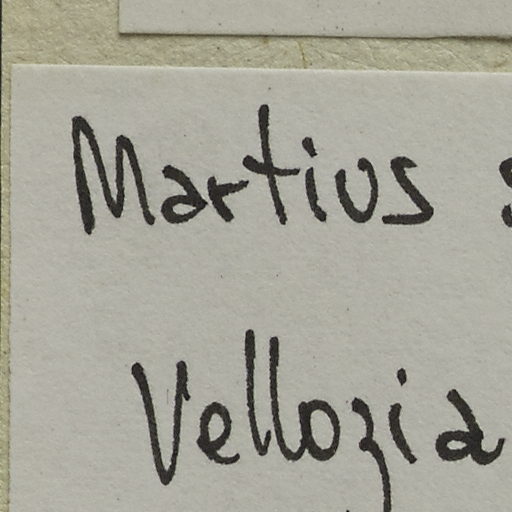 Martius
Vellozia